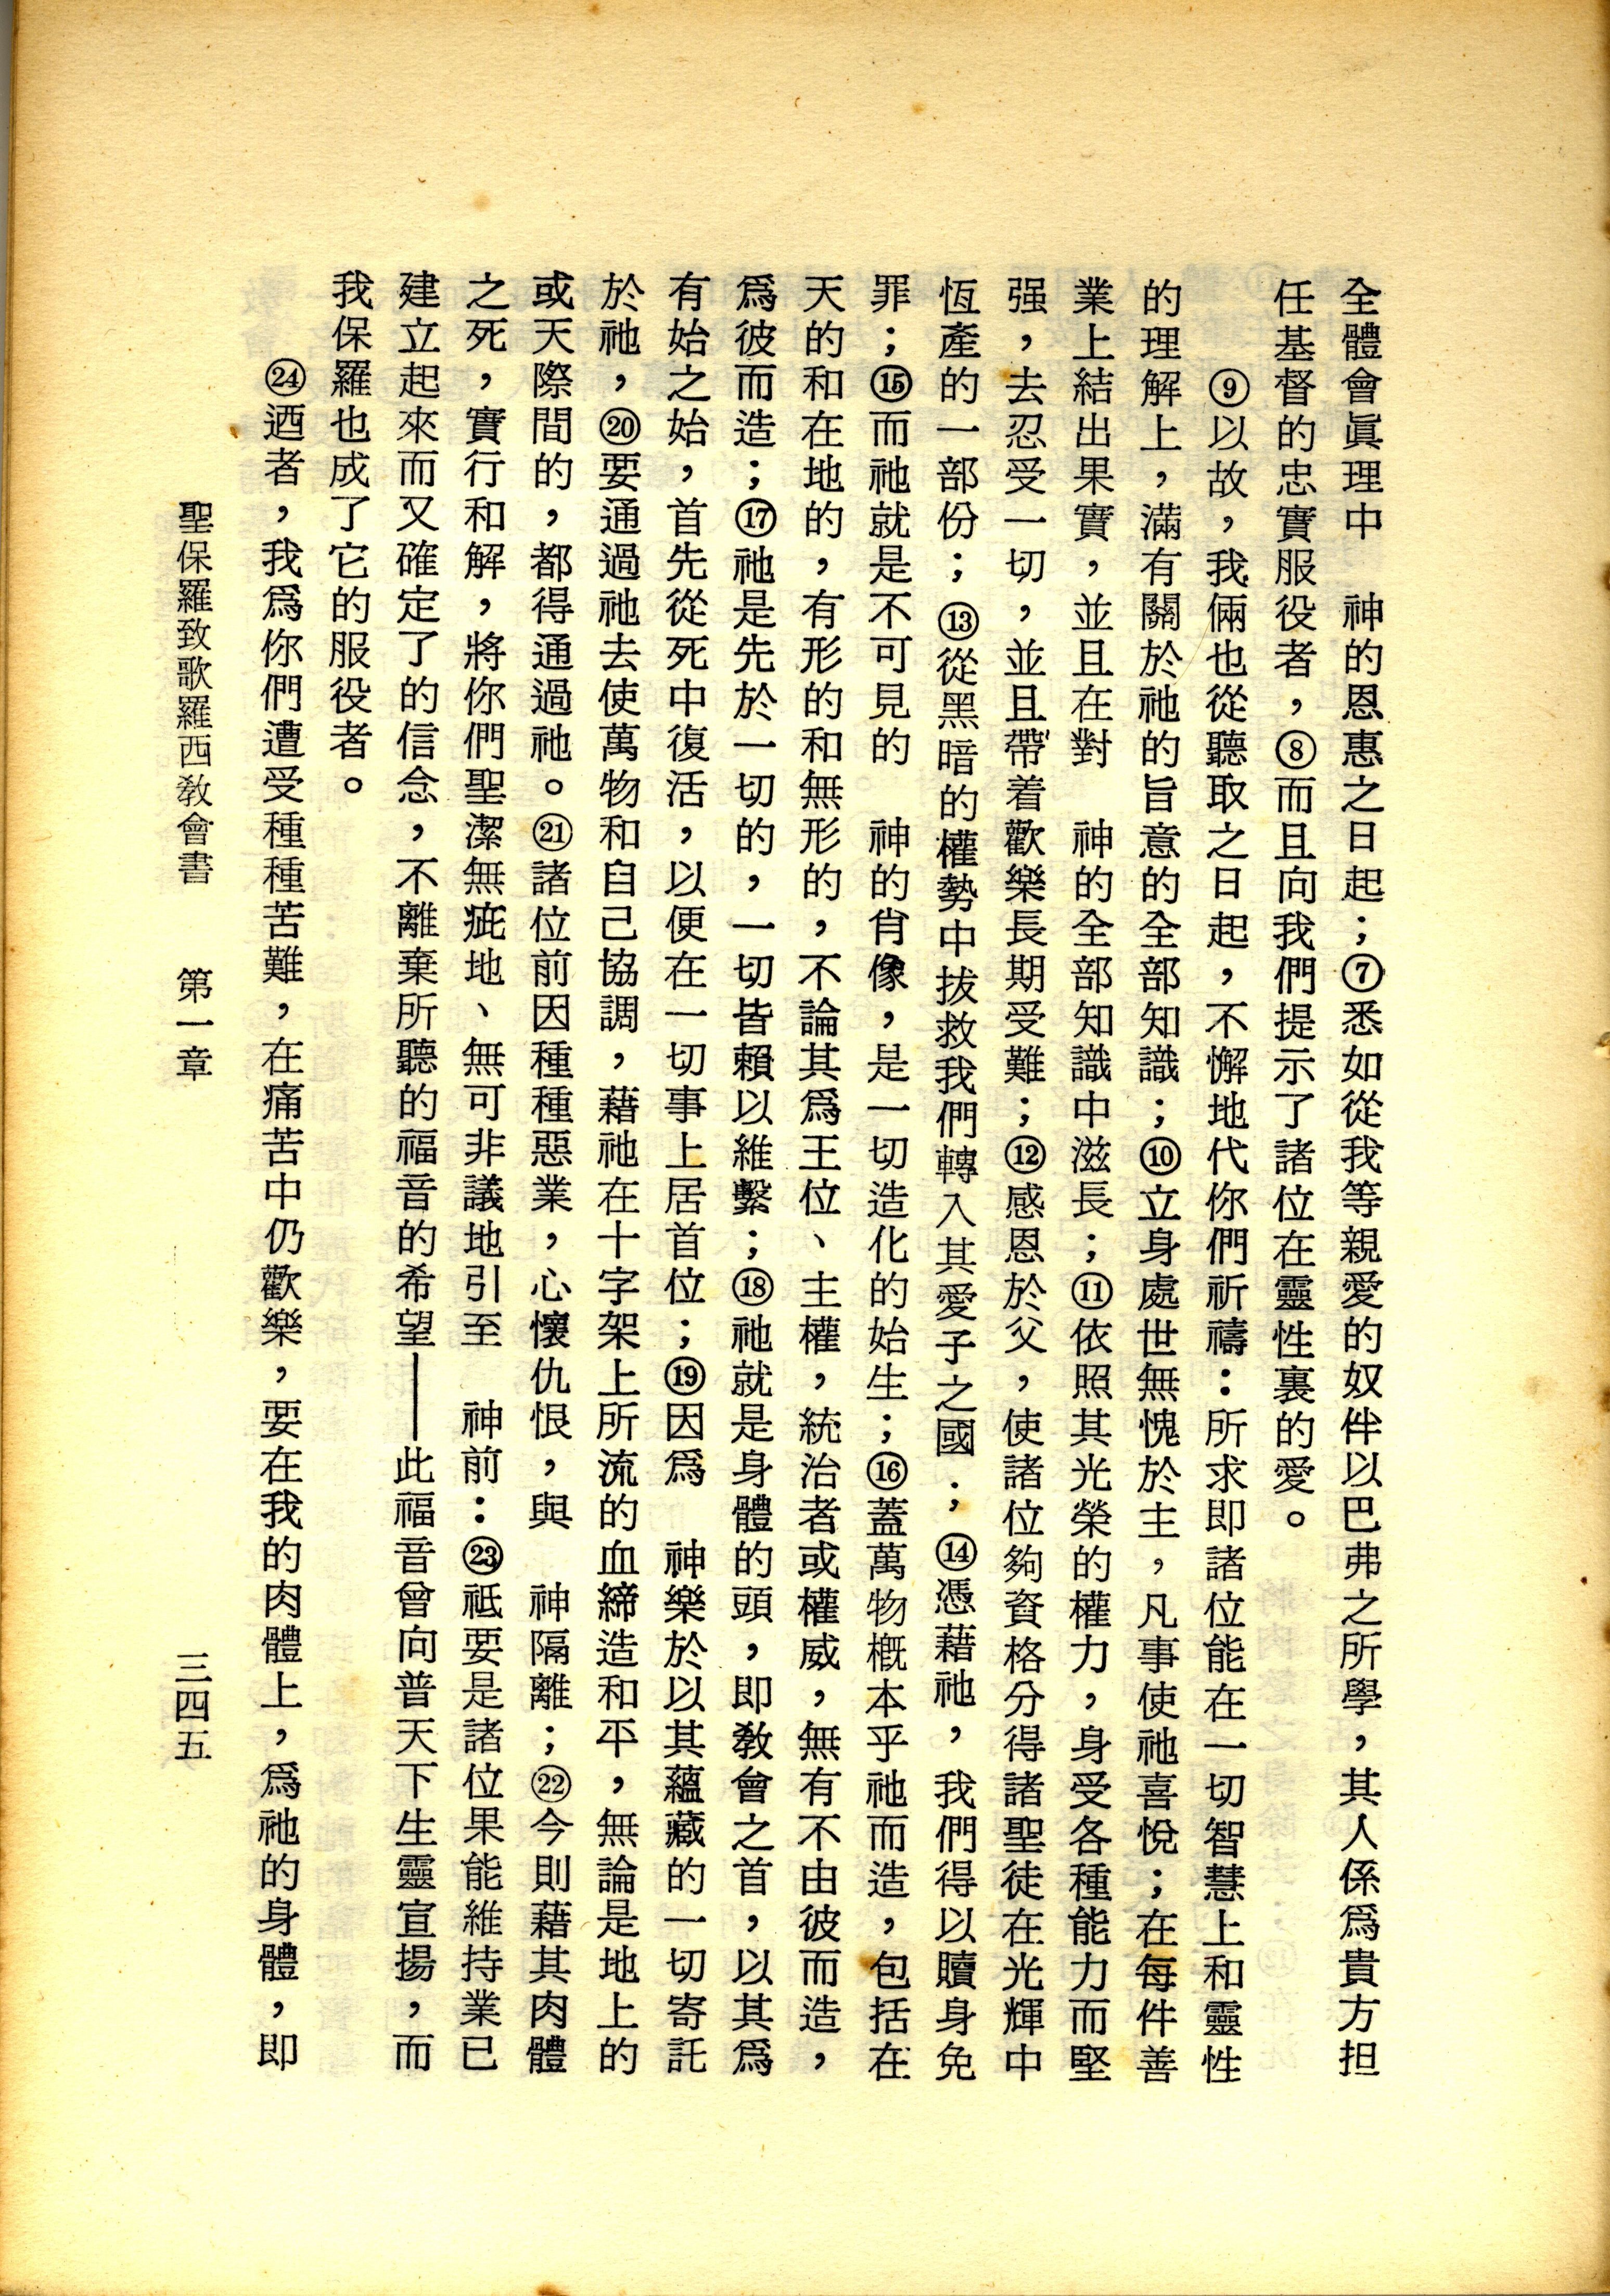 全體會眞理中　神的恩惠之日起；⑦悉如從我等親愛的奴伴以巴弗之所學，其人係爲貴方担
任基督的忠實服役者，⑧而且向我們提示了諸位在靈性裏的愛。
⑨以故，我倆也從聽取之日起，不懈地代你們祈禱：所求即諸位能在一切智慧上和靈性
的理解上，滿有關於祂的旨意的全部知識；⑩立身處世無愧於主，凡事使祂喜悅；在每件善
業上結出果實，並且在對　神的全部知識中滋長；⑪依照其光榮的權力，身受各種能力而堅
强，去忍受一切，並且帶着歡樂長期受難；⑫感恩於父，使諸位夠資格分得諸聖徒在光輝中
恆產的一部份；⑬從黑暗的權勢中拔救我們轉入其愛子之國；⑭憑藉祂，我們得以贖身免
罪；⑮而祂就是不可見的　神的肖像，是一切造化的始生；⑯蓋萬物概本乎祂而造，包括在
天的和在地的，有形的和無形的，不論其爲王位、主權，統治者或權威，無有不由彼而造，
爲彼而造；⑰祂是先於一切的，一切皆賴以維繫；⑱祂就是身體的頭，即敎會之首，以其爲
有始之始，首先從死中復活，以便在一切事上居首位；⑲因爲　神樂於以其蘊藏的一切寄託
於祂，⑳要通過祂去使萬物和自己協調，藉祂在十字架上所流的血締造和平，無論是地上的
或天際間的，都得通過祂。㉑諸位前因種種惡業，心懷仇恨，與　神隔離；㉒今則藉其肉體
之死，實行和解，將你們聖潔無疵地、無可非議地引至　神前：㉓祗要是諸位果能維持業已
建立起來而又確定了的信念，不離棄所聽的福音的希望——此福音曾向普天下生靈宣揚，而
我保羅也成了它的服役者。
㉔迺者，我爲你們遭受種種苦難，在痛苦中仍歡樂，要在我的肉體上，爲祂的身體，即
聖保羅致歌羅西敎會書　第一章　三四五